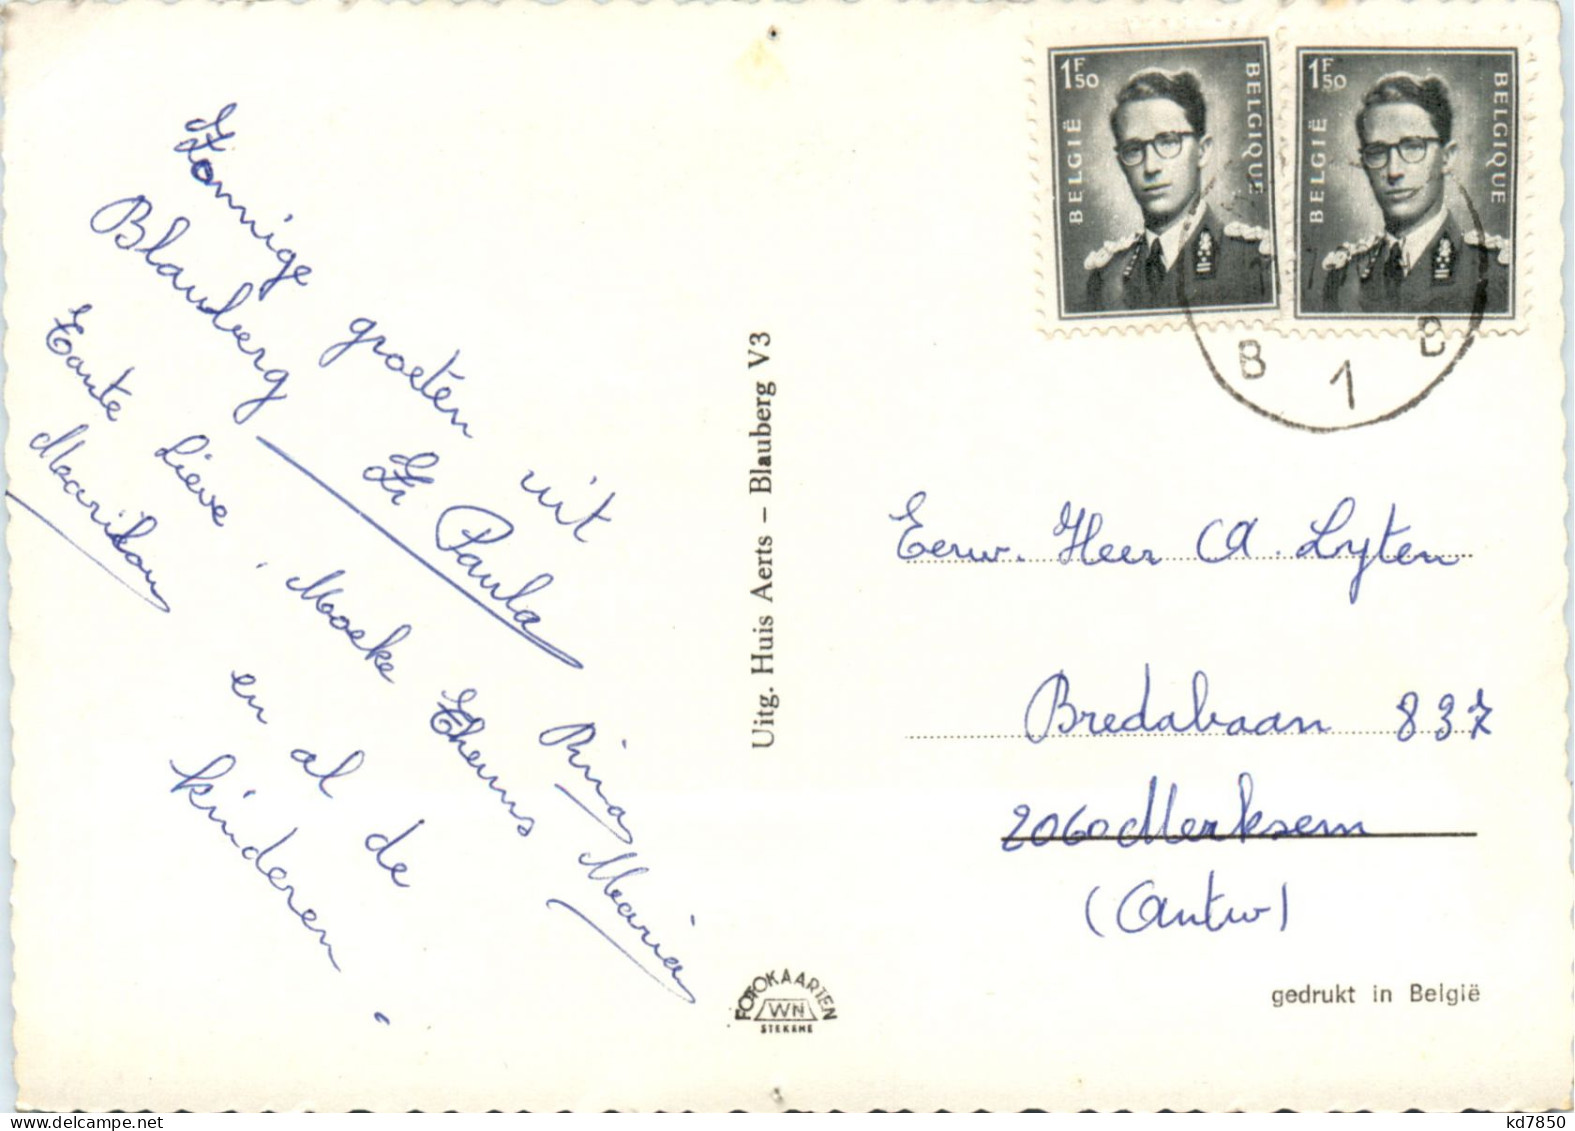 Zonnige groeten uit
Blauberg
Zr Paula
Tante Lieve, Moeke Theuns
Rina
Maria
Marilou
en al de
kinderen.
Uitg. Huis Aerts – Blauberg V3
FOTOKAARTEN
WN
STEKENE
1F50
BELGIË
BELGIQUE
1F50
BELGIË
BELGIQUE
B 1 B
Eerw. Heer A. Lyten
Bredabaan 837
2060 Merksem
(Antw)
gedrukt in België
kd7850